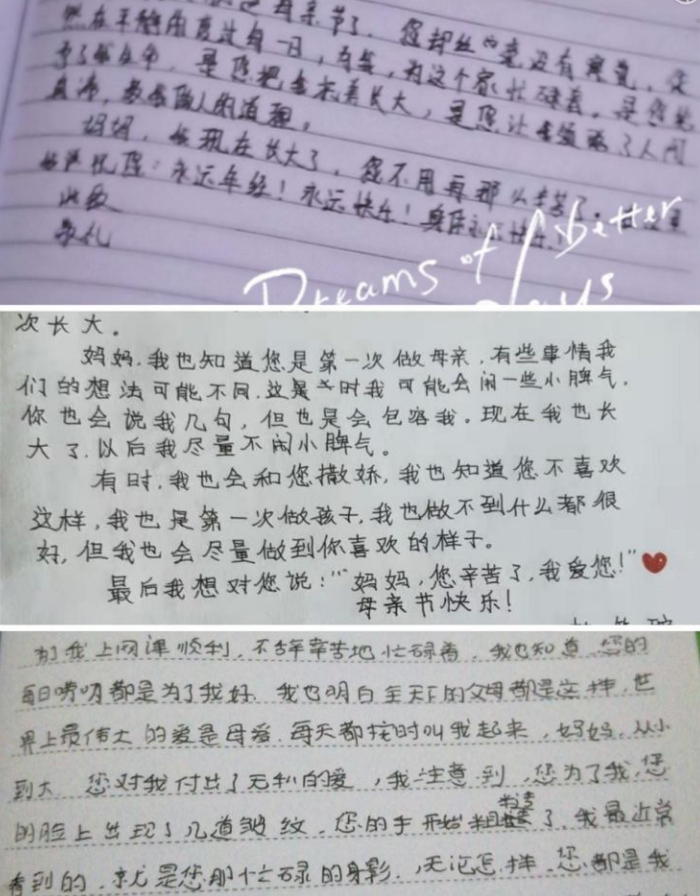 母亲节了，您却丝毫没有察觉，
在平静中度过每一日，
了我生命，是您把我养长大，是您让我领略了人间
真情，教我做人的道理。
妈妈，我现在长大了，您不用再那么辛苦了。
祝您：永远年轻！永远快乐！身体
此致
敬礼
Dreams of better
days
次长大。
妈妈，我也知道您是第一次做母亲，有些事情我
们的想法可能不同，这是当时我可能会闹一些小脾气，
你也会说我几句，但也是会包容我。现在我也长
大了，以后我尽量不闹小脾气。
有时，我也会和您撒娇，我也知道您不喜欢
这样，我也是第一次做孩子，我也做不到什么都很
好，但我也会尽量做到你喜欢的样子。
最后我想对您说：“妈妈，您辛苦了，我爱您！”
母亲节快乐！
我上网课顺利，不辞辛苦地忙碌着，我也知道，您的
每日唠叨都是为了我好，我也明白全天下的父母都是这样，世
界上最伟大的爱是母爱，每天都按时叫我起来，妈妈，从小
到大，您对我付出了无私的爱，我注意到，您为了我，您
的脸上出现了几道皱纹，您的手开始粗糙了，我最近常
看到的，就是您那忙碌的身影，无论怎样，您都是我